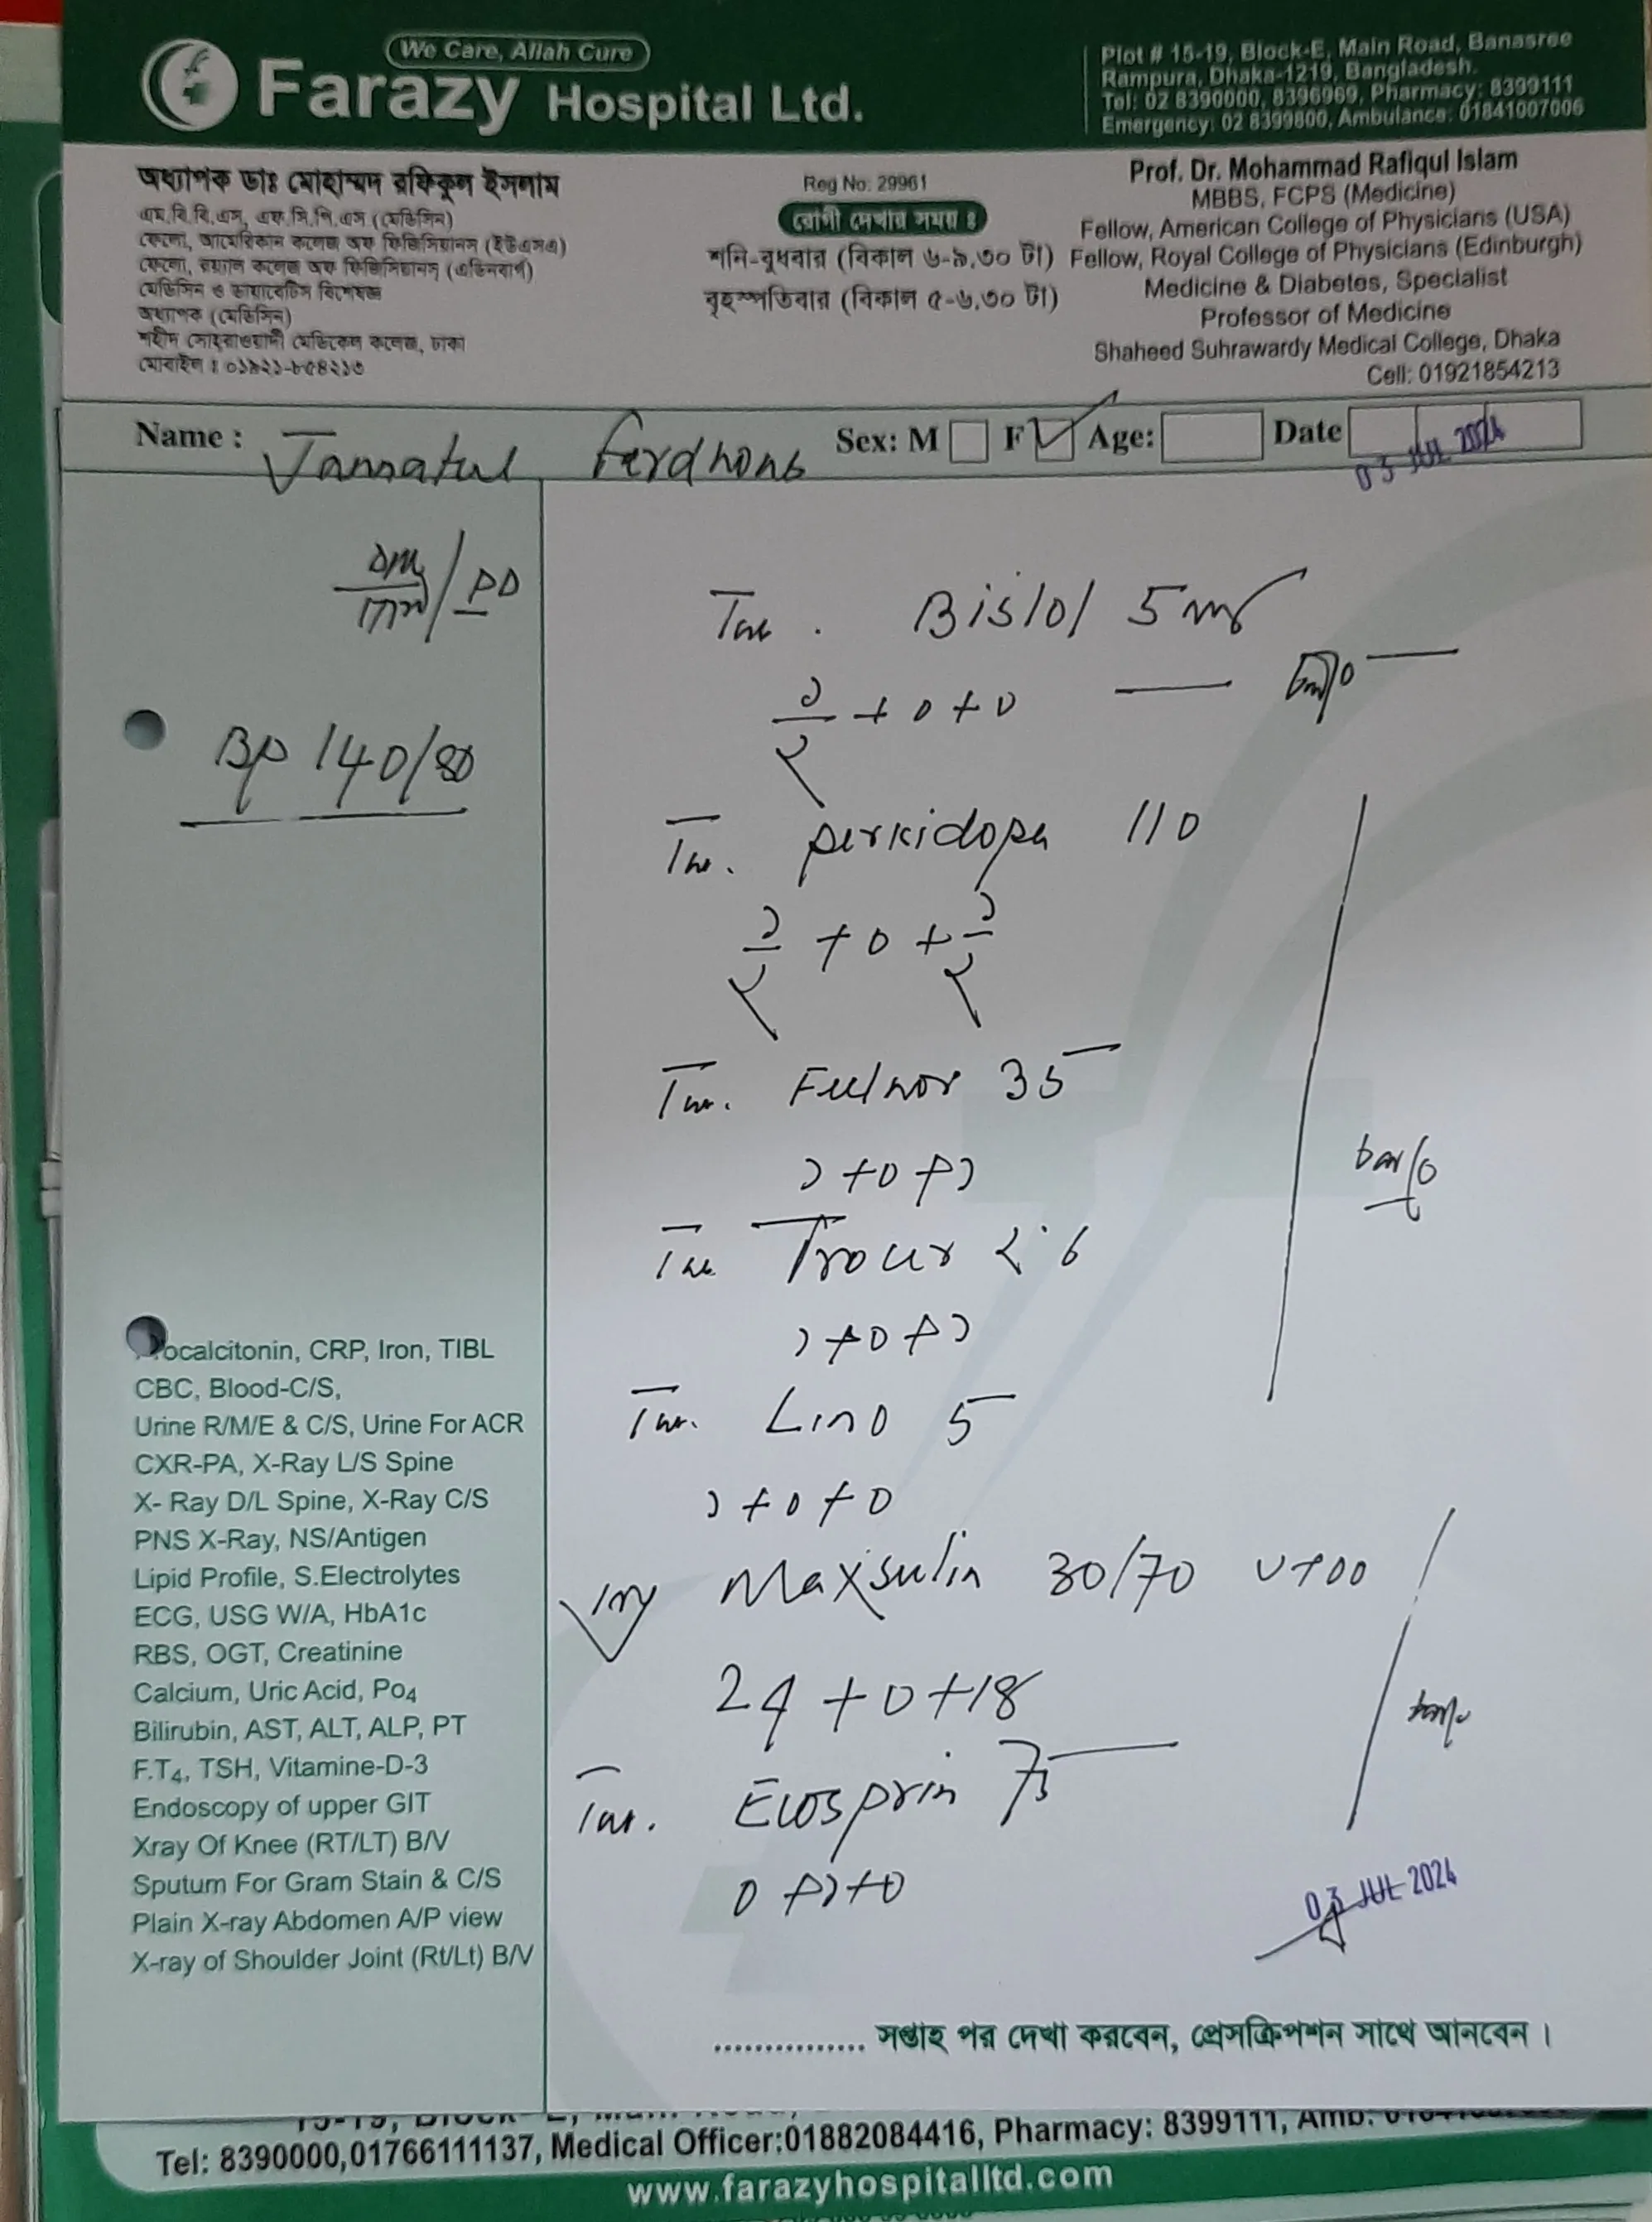 We Care, Allah Cure
Farazy Hospital Ltd.
Plot # 15-19, Block-E, Main Road, Banasree
Rampura, Dhaka-1219, Bangladesh.
Tel: 02 8390000, 8396969, Pharmacy: 8399111
Emergency: 02 8399800, Ambulance: 01841007006
অধ্যাপক ডাঃ মোহাম্মদ রফিকুল ইসলাম
এম.বি.বি.এস, এফ.সি.পি.এস (মেডিসিন)
ফেলো, আমেরিকান কলেজ অফ ফিজিসিয়ানস (ইউএসএ)
ফেলো, রয়্যাল কলেজ অফ ফিজিসিয়ানস্ (এডিনবার্গ)
মেডিসিন ও ডায়াবেটিস বিশেষজ্ঞ
অধ্যাপক (মেডিসিন)
শহীদ সোহরাওয়ার্দী মেডিকেল কলেজ, ঢাকা
মোবাইল : ০১৯২১-৮৫৪২১৩
Reg No: 29961
রোগী দেখার সময় ঃ
শনি-বুধবার (বিকাল ৬-৯.৩০ টা)
বৃহস্পতিবার (বিকাল ৫-৬.৩০ টা)
Prof. Dr. Mohammad Rafiqul Islam
MBBS, FCPS (Medicine)
Fellow, American College of Physicians (USA)
Fellow, Royal College of Physicians (Edinburgh)
Medicine & Diabetes, Specialist
Professor of Medicine
Shaheed Suhrawardy Medical College, Dhaka
Cell: 01921854213
Name : Jannatul Ferdhous Sex: M F Age: Date 03 JUL 2024
DM/HTN/PD
BP 140/80
Procalcitonin, CRP, Iron, TIBL
CBC, Blood-C/S,
Urine R/M/E & C/S, Urine For ACR
CXR-PA, X-Ray L/S Spine
X- Ray D/L Spine, X-Ray C/S
PNS X-Ray, NS/Antigen
Lipid Profile, S.Electrolytes
ECG, USG W/A, HbA1c
RBS, OGT, Creatinine
Calcium, Uric Acid, Po4
Bilirubin, AST, ALT, ALP, PT
F.T4, TSH, Vitamine-D-3
Endoscopy of upper GIT
Xray Of Knee (RT/LT) B/V
Sputum For Gram Stain & C/S
Plain X-ray Abdomen A/P view
X-ray of Shoulder Joint (Rt/Lt) B/V
Tab. Bislol 5 mg
১/২ + 0 + 0
Tab. perkidopa 110
১/২ + 0 + ১/২
Tab. 35
১ + 0 + ১
Tab ২.6
১ + 0 + ১
Tab. Lino 5
১ + 0 + 0
Inj Maxsulin 30/70 U100
24 + 0 + 18
Tab. Ecosprin 75
0 + ১ + 0
03 JUL 2024
............... সপ্তাহ পর দেখা করবেন, প্রেসক্রিপশন সাথে আনবেন।
Tel: 8390000,01766111137, Medical Officer:01882084416, Pharmacy: 8399111, Amb:
www.farazyhospitalltd.com